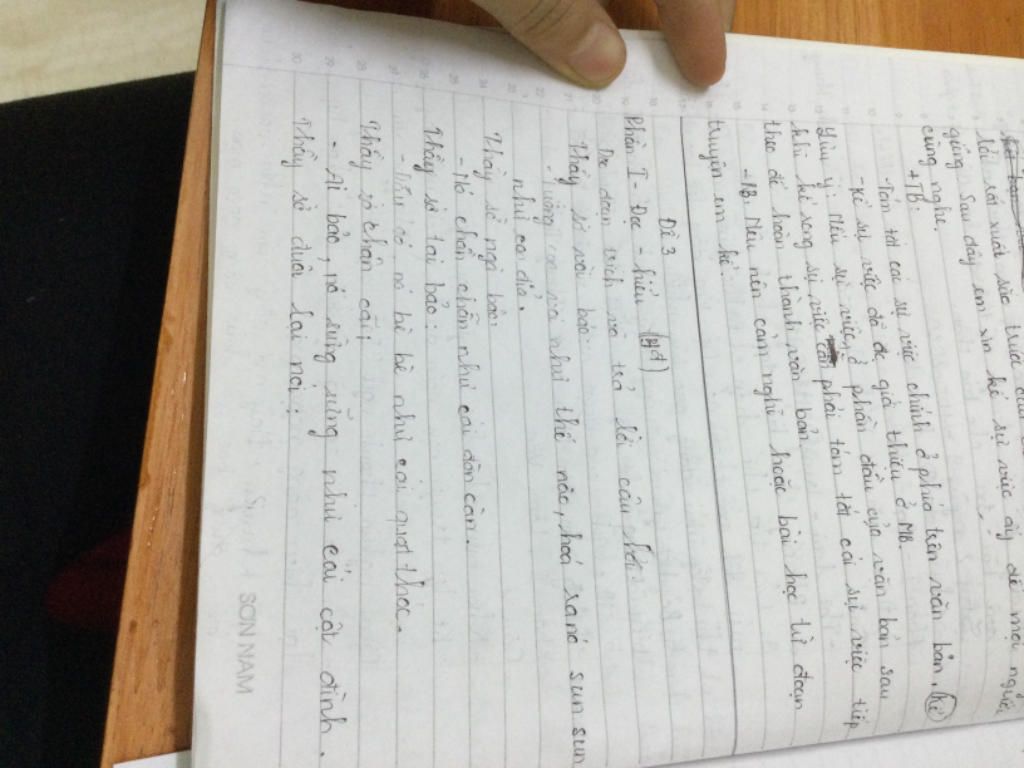 lối sát xuất sắc trước của
giếng. Sau đây em xin kể sự việc ấy để mọi người
cùng nghe.
+ TB:
- Tóm tắt các sự việc chính ở phía trên văn bản. kể
- Kể sự việc đã đc giới thiệu ở MB.
Lưu ý: Nếu sự việc ở phần đầu của văn bản sau
khi kể xong sự việc phải tóm tắt các sự việc tiếp
theo để hoàn thành văn bản.
- KB: Nêu nên cảm nghĩ hoặc bài học từ đoạn
truyện em kể.
Đề 3
Phần I - Đọc - hiểu
Đọc đoạn trích và trả lời câu hỏi
Thầy sờ vòi bảo:
- Tưởng con voi như thế nào, hoá ra nó sun sun
như con đỉa.
Thầy sờ ngà bảo:
- Nó chần chẫn như cái đòn càn.
Thầy sờ tai bảo:
- Đâu có, nó bè bè như cái quạt thóc.
Thầy sờ chân cãi:
- Ai bảo, nó sừng sững như cái cột đình.
Thầy sờ đuôi lại nói:
SƠN NAM